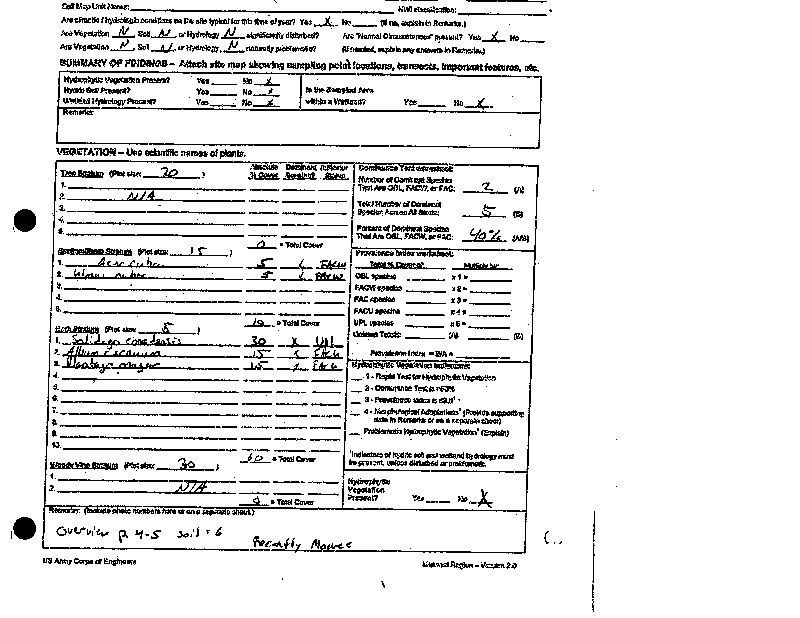 Soil Map Unit Name: NWI classification:
Are climatic / hydrologic conditions on the site typical for this time of year? Yes X No (If no, explain in Remarks.)
Are Vegetation N, Soil N, or Hydrology N significantly disturbed? Are "Normal Circumstances" present? Yes X No
Are Vegetation N, Soil N, or Hydrology N naturally problematic? (If needed, explain any answers in Remarks.)
SUMMARY OF FINDINGS – Attach site map showing sampling point locations, transects, important features, etc.
Hydrophytic Vegetation Present? Yes No X
Hydric Soil Present? Yes No X
Wetland Hydrology Present? Yes No X
Is the Sampled Area
within a Wetland? Yes No X
Remarks:
VEGETATION – Use scientific names of plants.
Tree Stratum (Plot size: 30 )
Absolute Dominant Indicator
% Cover Species? Status
1.
2. N/A
3.
4.
5.
0 = Total Cover
Sapling/Shrub Stratum (Plot size: 15 )
1. Acer rubrum 5 FACW
2. 5 FACW
3.
4.
5.
10 = Total Cover
Herb Stratum (Plot size: 5 )
1. Solidago canadensis 30 X UPL
2. 15 X FACU
3. Plantago major 15 X FACU
4.
5.
6.
7.
8.
9.
10.
60 = Total Cover
Woody Vine Stratum (Plot size: 30 )
1.
2. N/A
0 = Total Cover
Dominance Test worksheet:
Number of Dominant Species
That Are OBL, FACW, or FAC: 2 (A)
Total Number of Dominant
Species Across All Strata: 5 (B)
Percent of Dominant Species
That Are OBL, FACW, or FAC: 40% (A/B)
Prevalence Index worksheet:
Total % Cover of: Multiply by:
OBL species x 1 =
FACW species x 2 =
FAC species x 3 =
FACU species x 4 =
UPL species x 5 =
Column Totals: (A) (B)
Prevalence Index = B/A =
Hydrophytic Vegetation Indicators:
1 - Rapid Test for Hydrophytic Vegetation
2 - Dominance Test is >50%
3 - Prevalence Index is ≤3.0¹
4 - Morphological Adaptations¹ (Provide supporting
data in Remarks or on a separate sheet)
Problematic Hydrophytic Vegetation¹ (Explain)
¹Indicators of hydric soil and wetland hydrology must
be present, unless disturbed or problematic.
Hydrophytic
Vegetation
Present? Yes No X
Remarks: (Include photo numbers here or on a separate sheet.)
Overview p. 4-5 soil = 6
Recently Mowed
US Army Corps of Engineers
Midwest Region – Version 2.0